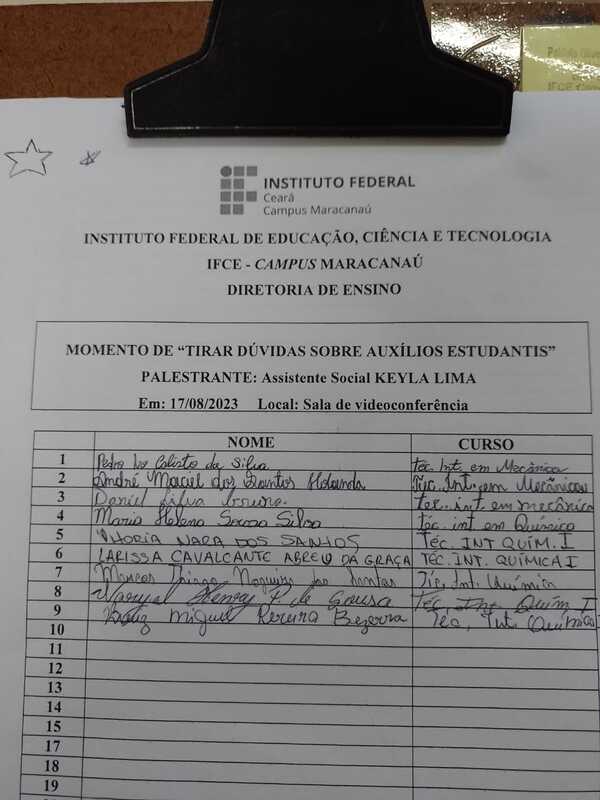 INSTITUTO FEDERAL
Ceará
Campus Maracanaú
INSTITUTO FEDERAL DE EDUCAÇÃO, CIÊNCIA E TECNOLOGIA
IFCE - CAMPUS MARACANAÚ
DIRETORIA DE ENSINO
MOMENTO DE “TIRAR DÚVIDAS SOBRE AUXÍLIOS ESTUDANTIS”
PALESTRANTE: Assistente Social KEYLA LIMA
Em: 17/08/2023 Local: Sala de videoconferência
NOME CURSO
1 Pedro Ivo Calisto da Silva Téc. Int. em Mecânica
2 André Maciel dos Santos Holanda Téc. Int. em Mecânica
3 Daniel Silva tec. int em mecânica
4 Maria Helena Sousa Silva téc. int em Química
5 NARA DOS SANTOS TÉC. INT QUÍM. I
6 LARISSA CAVALCANTE ABREU DA GRAÇA TÉC. INT. QUÍMICA I
7 Marcos Thiago Nogueira dos Santos Téc. Int. Química
8 Henry P. de Sousa Téc Int Quím I
9 Miguel Pereira Bezerra Téc, Int. Química
10
11
12
13
14
15
17
18
19